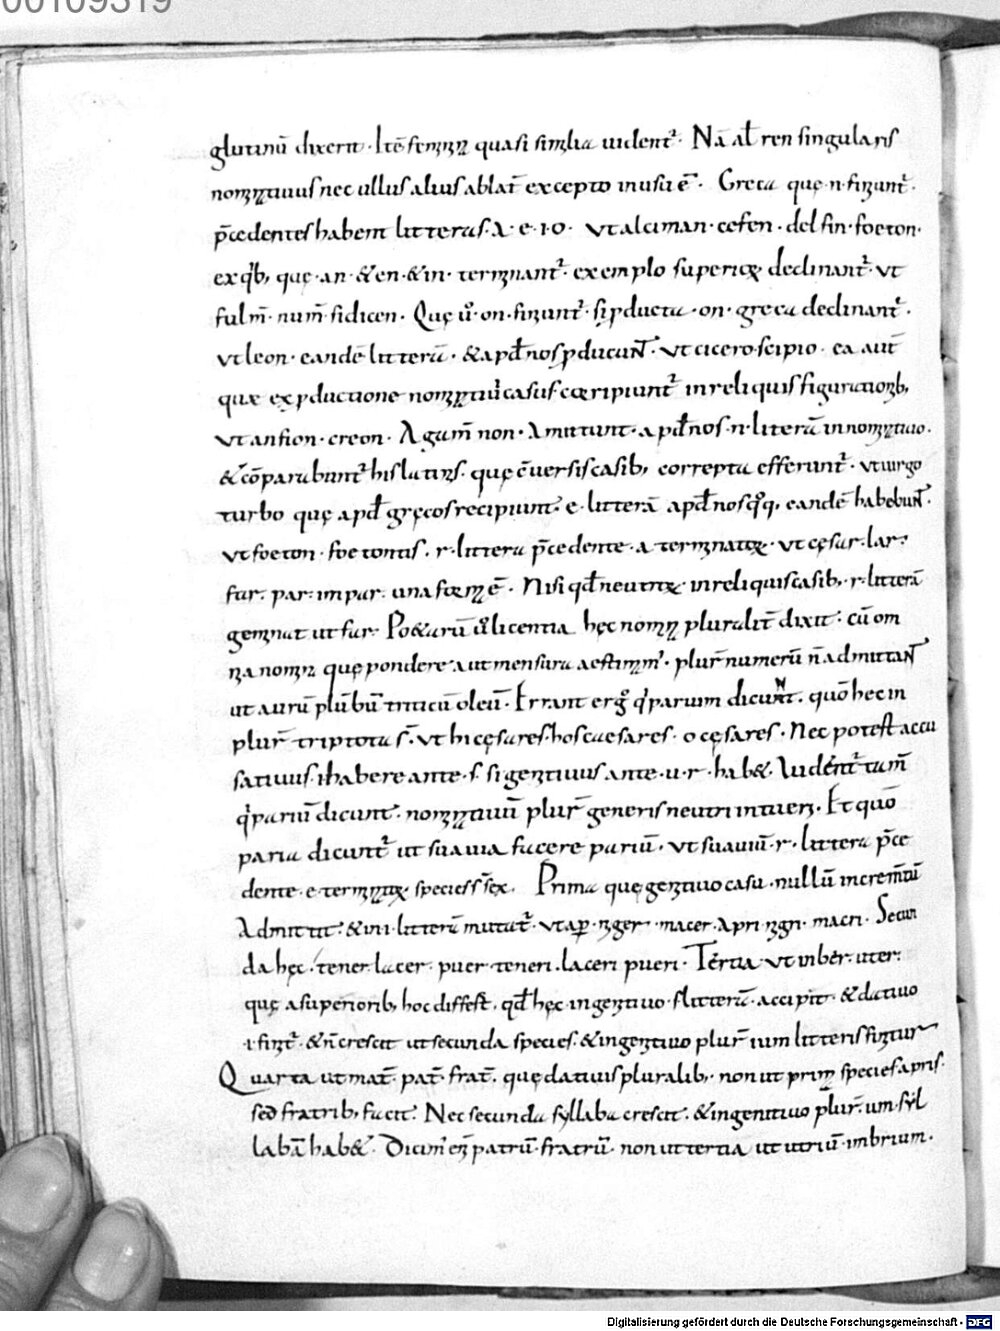 00109319
glutinū dixerit · Itē femina quasi similia uident᷑ · Nā al̄ ren singularis
nominatiuus nec ullus alius ablat̄ excepto inusu ē · Greca quę · n · finiunt᷑ ·
p̄cedentes habent litteras · a · e · i · o · vt alciman · cefen · delfin · foeton ·
ex qb; quę · an · & en · & in · terminant᷑ · exemplo superior declinant᷑ · vt
fulm̄ · num̄ · fidicen · Quę ů · on · finiunt᷑ · si pducta · on · greca declinant᷑ ·
vt leon · eandē litterā · & apd̄ nos pducunt · vt cicero · scipio · ea aut̄
quae ex pductione casus corripiunt᷑ in reliquis figurationib;
vt anfion · creon · Agam̄non · Amittunt · apd̄ nos · n · literā in nominatiuo ·
& cōparabunt᷑ his latinis · quę cuersis casib; correpta efferunt᷑ · vt uirgo
turbo quę apd̄ gręcos recipiunt · e · litterā apd̄ nos qoq, eandē habebunt ·
vt foeton · foetontis · r · littera p̄cedente · a · terminator · vt cęsar · lar ·
far · par · impar · una forma ē · Nisi qd̄ neutror · in reliquis casib; · r · litterā
geminat ut far · Po&arū licentia hęc nomina pluralit̄ dixit · cū om
nia nomina quę pondere aut mensura aestimam᷑ · plur̄ numerū n̄ admittant
ut aurū plūbū triticū oleū · Errant ergo qi parum dicunt · quō hec in
plur̄ triptota s̄ · vt hi cęsares · hos caesares · o cęsares · Nec potest accu
satiuus · i · habere ante · s · si genitiuus ante · u · r · hab& · Vident᷑ tam̄
qi pariū dicunt · nominatiuū plur̄ generis neutri intueri · Et quō
paria dicunt᷑ ut suauia facere pariū · vt suauiū · r · littera p̄ce
dente · e · terminator species s̄ sex · Prima quę genitiuo casu · nullū incremtū
Admittit · & in i · litterā mutat᷑ · vt aper · niger · macer · apri · nigri · macri · Secun
da hęc · tener · lacer · puer · teneri · laceri · pueri · Tertia · vt imber · uter ·
quę a superiorib; hoc differt · qd̄ hęc in genitiuo · s · litterā · accipit · & datiuo
· i · finit᷑ · & n̄ crescit ut secunda species · & in genitiuo plur̄ ium litteris finitur
Quarta ut mat̄ · pat̄ · frat̄ · quę datiuis pluralib; · non ut prima species apris ·
sed fratrib; facit · Nec secunda syllaba crescit · & in genitiuo plur̄ · um · syl
labā hab& · Dicim᷑ eni patrū · fratrū · non ut tertia ut utriū · imbrium ·
Digitalisierung gefördert durch die Deutsche Forschungsgemeinschaft - DFG